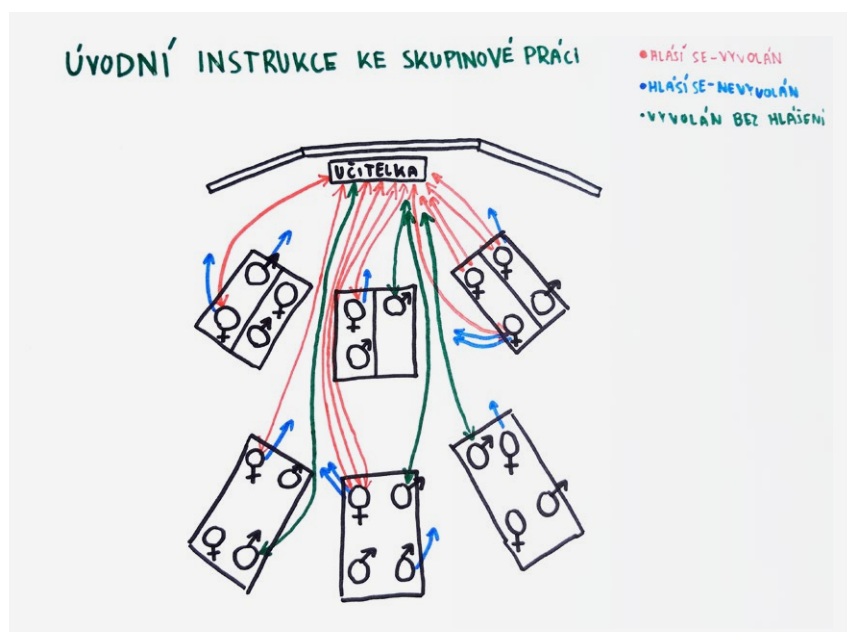 ÚVODNÍ INSTRUKCE KE SKUPINOVÉ PRÁCI
•HLÁSÍ SE-VYVOLÁN
•HLÁSÍ SE-NEVYVOLÁN
•VYVOLÁN BEZ HLÁŠENÍ
UČITELKA